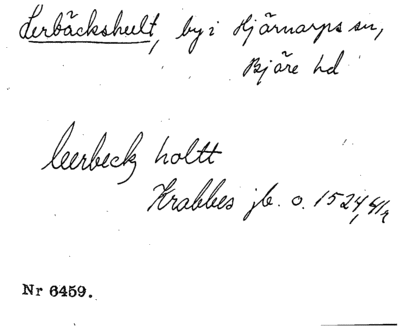 Lerbäckshult, by i Hjärnarps sn,
Bjäre hd
leerbeck holtt
Krabbes jb. o. 1524,
Nr 6459.